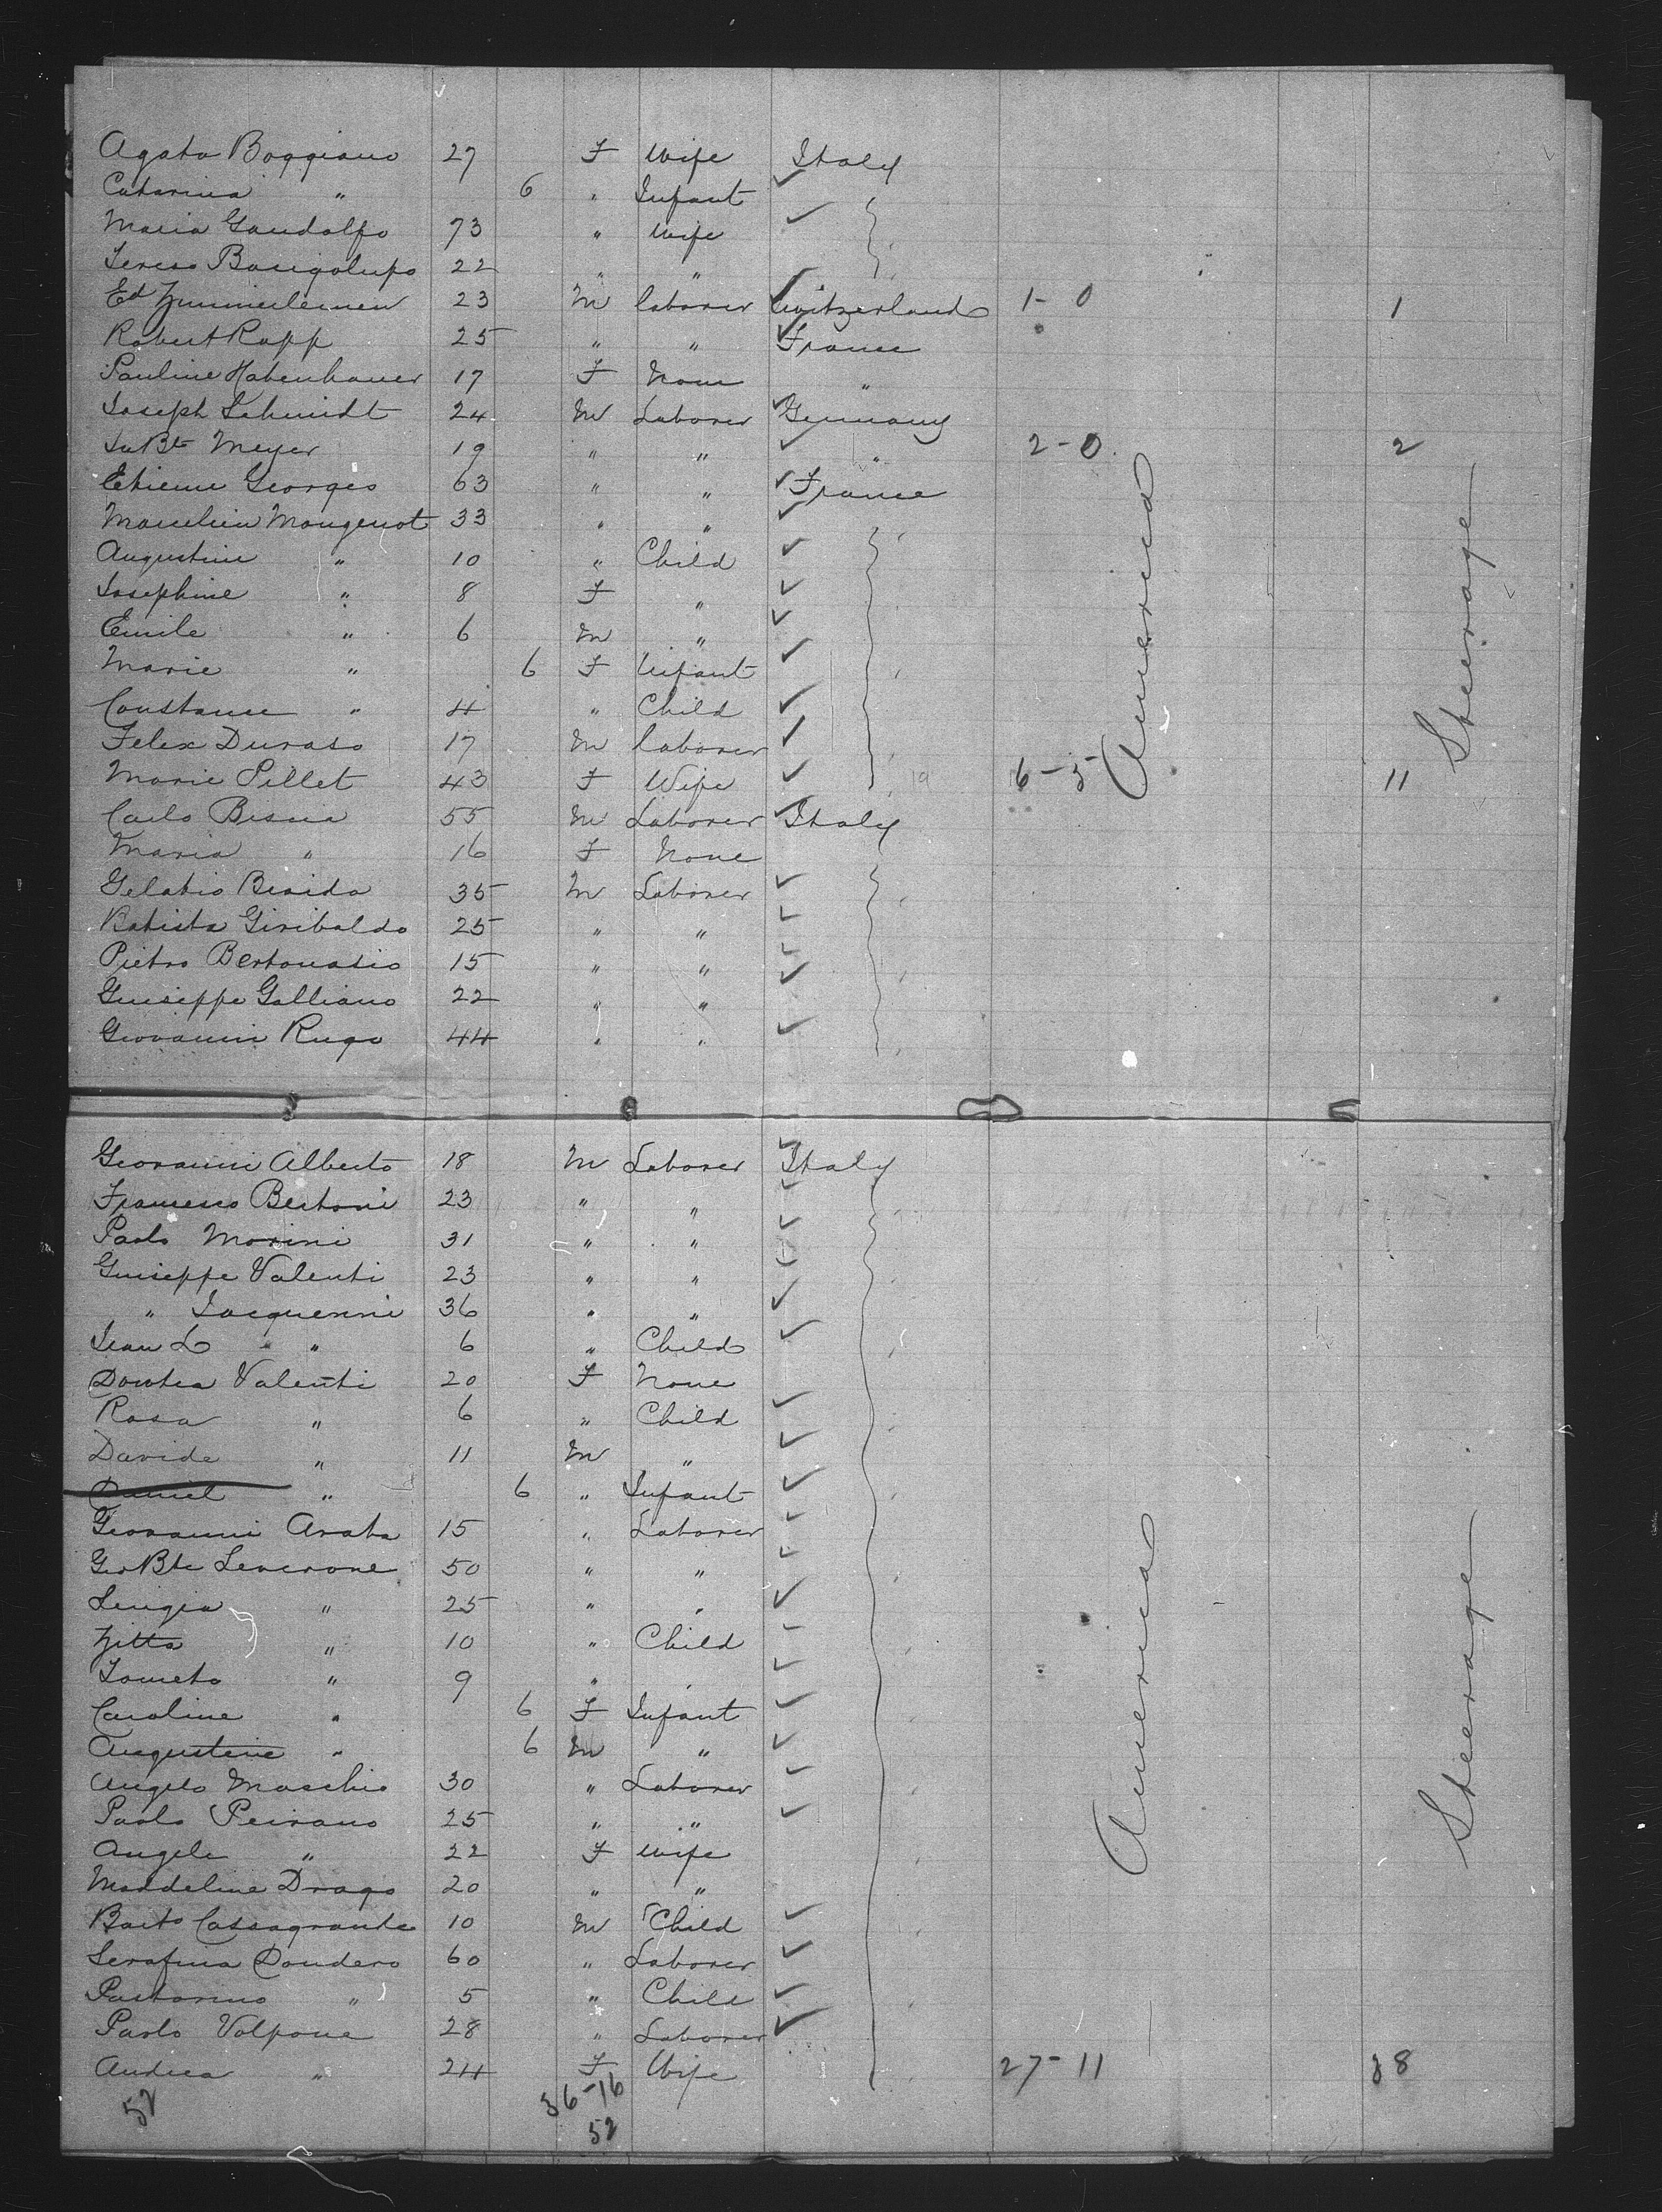 Agata Boggiano 27 F Wife Italy
Catarina " 6 " Infant
Maria Gandolfo 73 " Wife
Teresa Bacigalupo 22 " "
Ed 23 M laborer Switzerland 1-0 1
Robert Rapp 25 " " France
Pauline Habenhauer 17 F None "
Joseph Schmidt 24 M Laborer Germany
Meyer 19 " " " 2-0 2
Etienne Georges 63 " " France
Marcelin Mougenot 33 " "
Augustine " 10 " Child
Josephine " 8 F "
Emile " 6 M "
Marie " 6 F Infant
Constance " 4 " Child
Felix Duraso 17 M laborer
Marie Pillet 43 F Wife 6-5 11
America
Steerage
Carlo Biscia 55 M Laborer Italy
Maria " 16 F None
Gelatio Braida 35 M Laborer
Batista Giribaldo 25 " "
Pietro Bertonasio 15 " "
Guiseppe Galliano 22 " "
Giovanni Rugo 44 " "
Giovanni Alberto 18 M Laborer Italy
Francesco Bertoni 23 " "
Paolo Morini 31 " "
Guiseppe Valenti 23 " "
" Jacquenni 36 " "
Jean L " " 6 " Child
Valenti 20 F None
Rosa " 6 " Child
Davide " 11 M "
Daniel " 6 " Infant
Giovanni Arata 15 " Laborer
Gio Bte Leverone 50 " "
Luigia " 25 " "
Zitta " 10 " Child
" 9 "
Caroline " 6 F Infant
Augustine " 6 M "
Angelo Maschio 30 " Laborer
Paolo Peirano 25 " "
Angela " 22 F Wife
Maddeline Drago 20 " "
Barto Cassagrande 10 M Child
Serafina Dondero 60 " Laborer
Pastorino " 5 " Child
Paolo Volpone 28 " Laborer
Andrea " 24 F Wife 27-11 38
America
Steerage
52 36-16
52